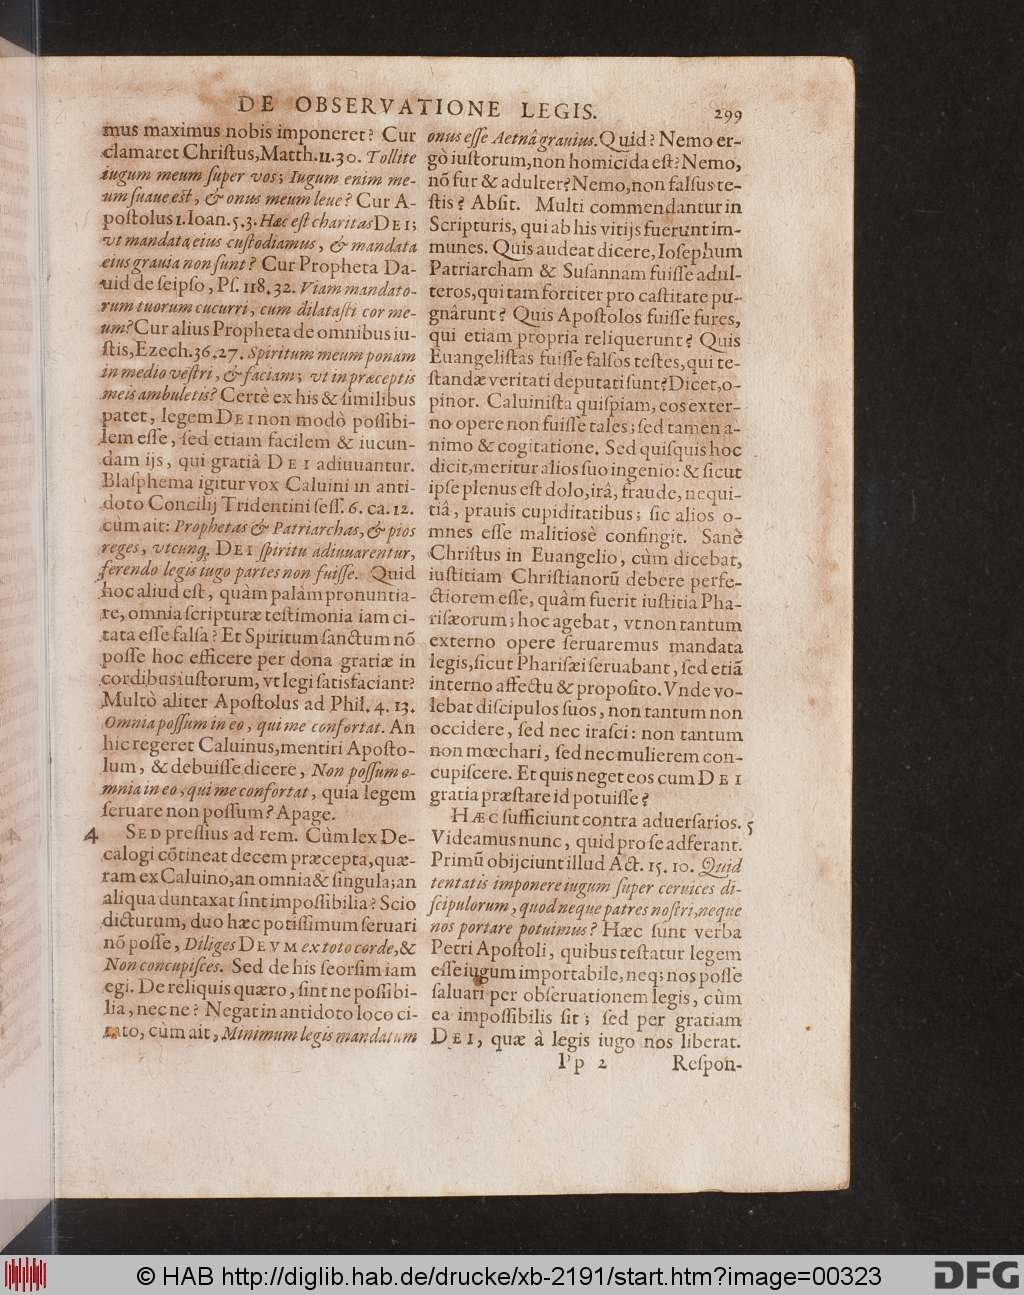 DE OBSERVATIONE LEGIS.
299
mus maximus nobis imponeret? Cur
clamaret Christus, Matth. 11. 30. Tollite
iugum meum super vos; Iugum enim me-
um suaue est, & onus meum leue? Cur A-
postolus 1. Ioan. 5. 3. Hæc est charitas DEI;
vt mandata eius custodiamus, & mandata
eius grauia non sunt? Cur Propheta Da-
uid de seipso, Ps. 118. 32. Viam mandato-
rum tuorum cucurri, cum dilatasti cor me-
um? Cur alius Propheta de omnibus iu-
stis, Ezech. 36. 27. Spiritum meum ponam
in medio vestri, & faciam; vt in præceptis
meis ambuletis? Certè ex his & similibus
patet, legem DEI non modò possibi-
lem esse, sed etiam facilem & iucun-
dam ijs, qui gratiâ DEI adiuuantur.
Blasphema igitur vox Caluini in anti-
doto Concilij Tridentini sess. 6. ca. 12.
cùm ait: Prophetas & Patriarchas, & pios
reges, vtcunq; DEI spiritu adiuuarentur,
ferendo legis iugo partes non fuisse. Quid
hoc aliud est, quàm palàm pronuntia-
re, omnia scripturæ testimonia iam ci-
tata esse falsa? Et Spiritum sanctum nõ
posse hoc efficere per dona gratiæ in
cordibus iustorum, vt legi satisfaciant?
Multò aliter Apostolus ad Phil. 4. 13.
Omnia possum in eo, qui me confortat. An
hic regeret Caluinus, mentiri Aposto-
lum, & debuisse dicere, Non possum o-
mnia in eo, qui me confortat, quia legem
seruare non possum? Apage.
4 SED pressius ad rem. Cùm lex De-
calogi cõtineat decem præcepta, quæ-
ram ex Caluino, an omnia & singula; an
aliqua duntaxat sint impossibilia? Scio
dicturum, duo hæc potissimum seruari
nõ posse, Diliges DEVM ex toto corde, &
Non concupisces. Sed de his seorsim iam
egi. De reliquis quæro, sint ne possibi-
lia, nec ne? Negat in antidoto loco ci-
tato, cùm ait, Minimum legis mandatum
onus esse Aetnâ grauius. Quid? Nemo er-
gò iustorum, non homicida est? Nemo,
nõ fur & adulter? Nemo, non falsus te-
stis? Absit. Multi commendantur in
Scripturis, qui ab his vitijs fuerunt im-
munes. Quis audeat dicere, Iosephum
Patriarcham & Susannam fuisse adul-
teros, qui tam fortiter pro castitate pu-
gnârunt? Quis Apostolos fuisse fures,
qui etiam propria reliquerunt? Quis
Euangelistas fuisse falsos testes, qui te-
standæ veritati deputati sunt? Dicet, o-
pinor. Caluinista quispiam, eos exter-
no opere non fuisse tales; sed tamen a-
nimo & cogitatione. Sed quisquis hoc
dicit, metitur alios suo ingenio: & sicut
ipse plenus est dolo, irâ, fraude, nequi-
tiâ, prauis cupiditatibus; sic alios o-
mnes esse malitiosè confingit. Sanè
Christus in Euangelio, cùm dicebat,
iustitiam Christianorũ debere perfe-
ctiorem esse, quàm fuerit iustitia Pha-
risæorum; hoc agebat, vt non tantum
externo opere seruaremus mandata
legis, sicut Pharisæi seruabant, sed etiã
interno affectu & proposito. Vnde vo-
lebat discipulos suos, non tantum non
occidere, sed nec irasci: non tantum
non mœchari, sed nec mulierem con-
cupiscere. Et quis neget eos cum DEI
gratia præstare id potuisse?
HÆC sufficiunt contra aduersarios. 5
Videamus nunc, quid pro se adferant.
Primũ obijciunt illud Act. 15. 10. Quid
tentatis imponere iugum super ceruices di-
scipulorum, quod neque patres nostri, neque
nos portare potuimus? Hæc sunt verba
Petri Apostoli, quibus testatur legem
esse iugum importabile, neq; nos posse
saluari per obseruationem legis, cùm
ea impossibilis sit; sed per gratiam
DEI, quæ à legis iugo nos liberat.
Pp 2 Respon-
© HAB http://diglib.hab.de/drucke/xb-2191/start.htm?image=00323
DFG